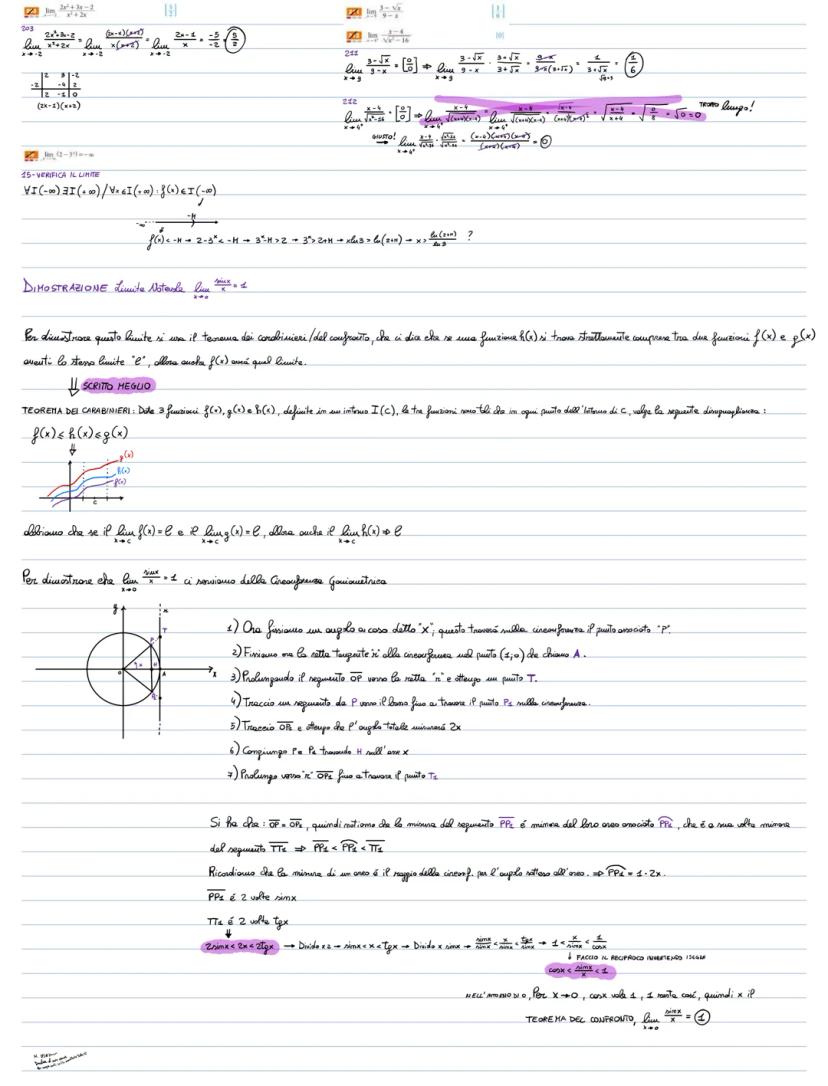 lim x→-2 2x²+3x-2 / x²+2x [5/2]
203
lim x→-2 2x²+3x-2 / x²+2x = lim x→-2 (2x-1)(x+2) / x(x+2) = lim x→-2 2x-1 / x = -5/-2 = 5/2
2 3 -2
-2 -4 2
2 -1 0
(2x-1)(x+2)
lim 3-√x / 9-x [1/6]
lim x-4 / √x²-16 [0]
211
lim x→9 3-√x / 9-x = [0/0] ⇒ lim x→9 3-√x / 9-x · 3+√x / 3+√x = 9-x / 9-x(3+√x) = 1 / 3+√x = 1/6
212
lim x→4⁺ x-4 / √x²-16 = [0/0] ⇒ lim x→4⁺ x-4 / √(x+4)(x-4) = √x-4 / x+4 = √0/8 = √0 = 0 TROPPO lungo!
GIUSTO! → lim x→4⁺ x-4 / √x²-16 · √x²-16 / √x²-16 = 0
lim (2-3ˣ)=-∞
15-VERIFICA IL LIMITE
∀I(-∞)∃I(+∞)/∀x∈I(+∞): f(x)∈I(-∞)
-∞ -M
f(x)<-M → 2-3ˣ<-M → 3ˣ-M>2 → 3ˣ>2+M → xln3>ln(2+M) → x> ln(2+M) / ln3 ?
DIMOSTRAZIONE Limite Notevole lim x→0 sinx / x = 1
Per dimostrare questo limite si usa il teorema dei carabinieri/del confronto, che ci dice che se una funzione h(x) si trova strettamente compresa tra due funzioni f(x) e g(x)
aventi lo stesso limite "ℓ", allora anche f(x) avrà quel limite.
⇓ SCRITTO MEGLIO
TEOREMA DEI CARABINIERI: Date 3 funzioni f(x), g(x) e h(x), definite in un intorno I(C), le tre funzioni sono tali che in ogni punto dell'intorno di C, valga la seguente disuguaglianza:
f(x)≤h(x)≤g(x)
g(x)
h(x)
f(x)
c
abbiamo che se il lim x→c f(x)=ℓ e il lim x→c g(x)=ℓ, allora anche il lim x→c h(x)⇒ℓ
Per dimostrare che lim x→0 sinx / x = 1 ci serviamo della Circonferenza Goniometrica
1) Ora fissiamo un angolo a caso detto "x"; questo troverà sulla circonferenza il punto associato "P".
2) Fissiamo ora la retta tangente "r" alla circonferenza nel punto (1;0) che chiamo A.
3) Prolungando il segmento OP verso la retta "r" e ottengo un punto T.
4) Traccio un segmento da P verso il basso fino a trovare il punto P₁ sulla circonferenza.
5) Traccio OP₁ e ottengo che l'angolo totale misurerà 2x
6) Congiungo P e P₁ trovando H sull'asse x
7) Prolungo verso "r" OP₁ fino a trovare il punto T₁
Si ha che: OP = OP₁, quindi notiamo che la misura del segmento PP₁ é minore del loro arco associato PP₁, che é a sua volta minore
del segmento TT₁ ⇒ PP₁ < PP₁ < TT₁
Ricordiamo che la misura di un arco é il raggio della circonf. per l'angolo sotteso all'arco. ⇒ PP₁ = 1·2x.
PP₁ é 2 volte sinx
TT₁ é 2 volte tgx
2sinx<2x<2tgx → Divido x 2 → sinx<x<tgx → Divido x sinx → sinx/sinx < x/sinx < tgx/sinx → 1 < x/sinx < 1/cosx
↓ FACCIO IL RECIPROCO INVERTENDO I SEGNI
cosx < sinx/x < 1
NELL'INTORNO DI 0, Per x→0, cosx vale 1, 1 resta così, quindi x il
TEOREMA DEL CONFRONTO, lim x→0 sinx / x = 1